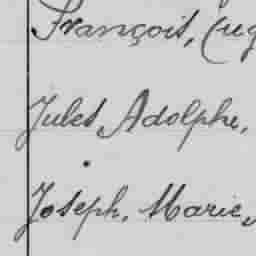 François,
Jules, Adolphe,
Joseph, Marie,